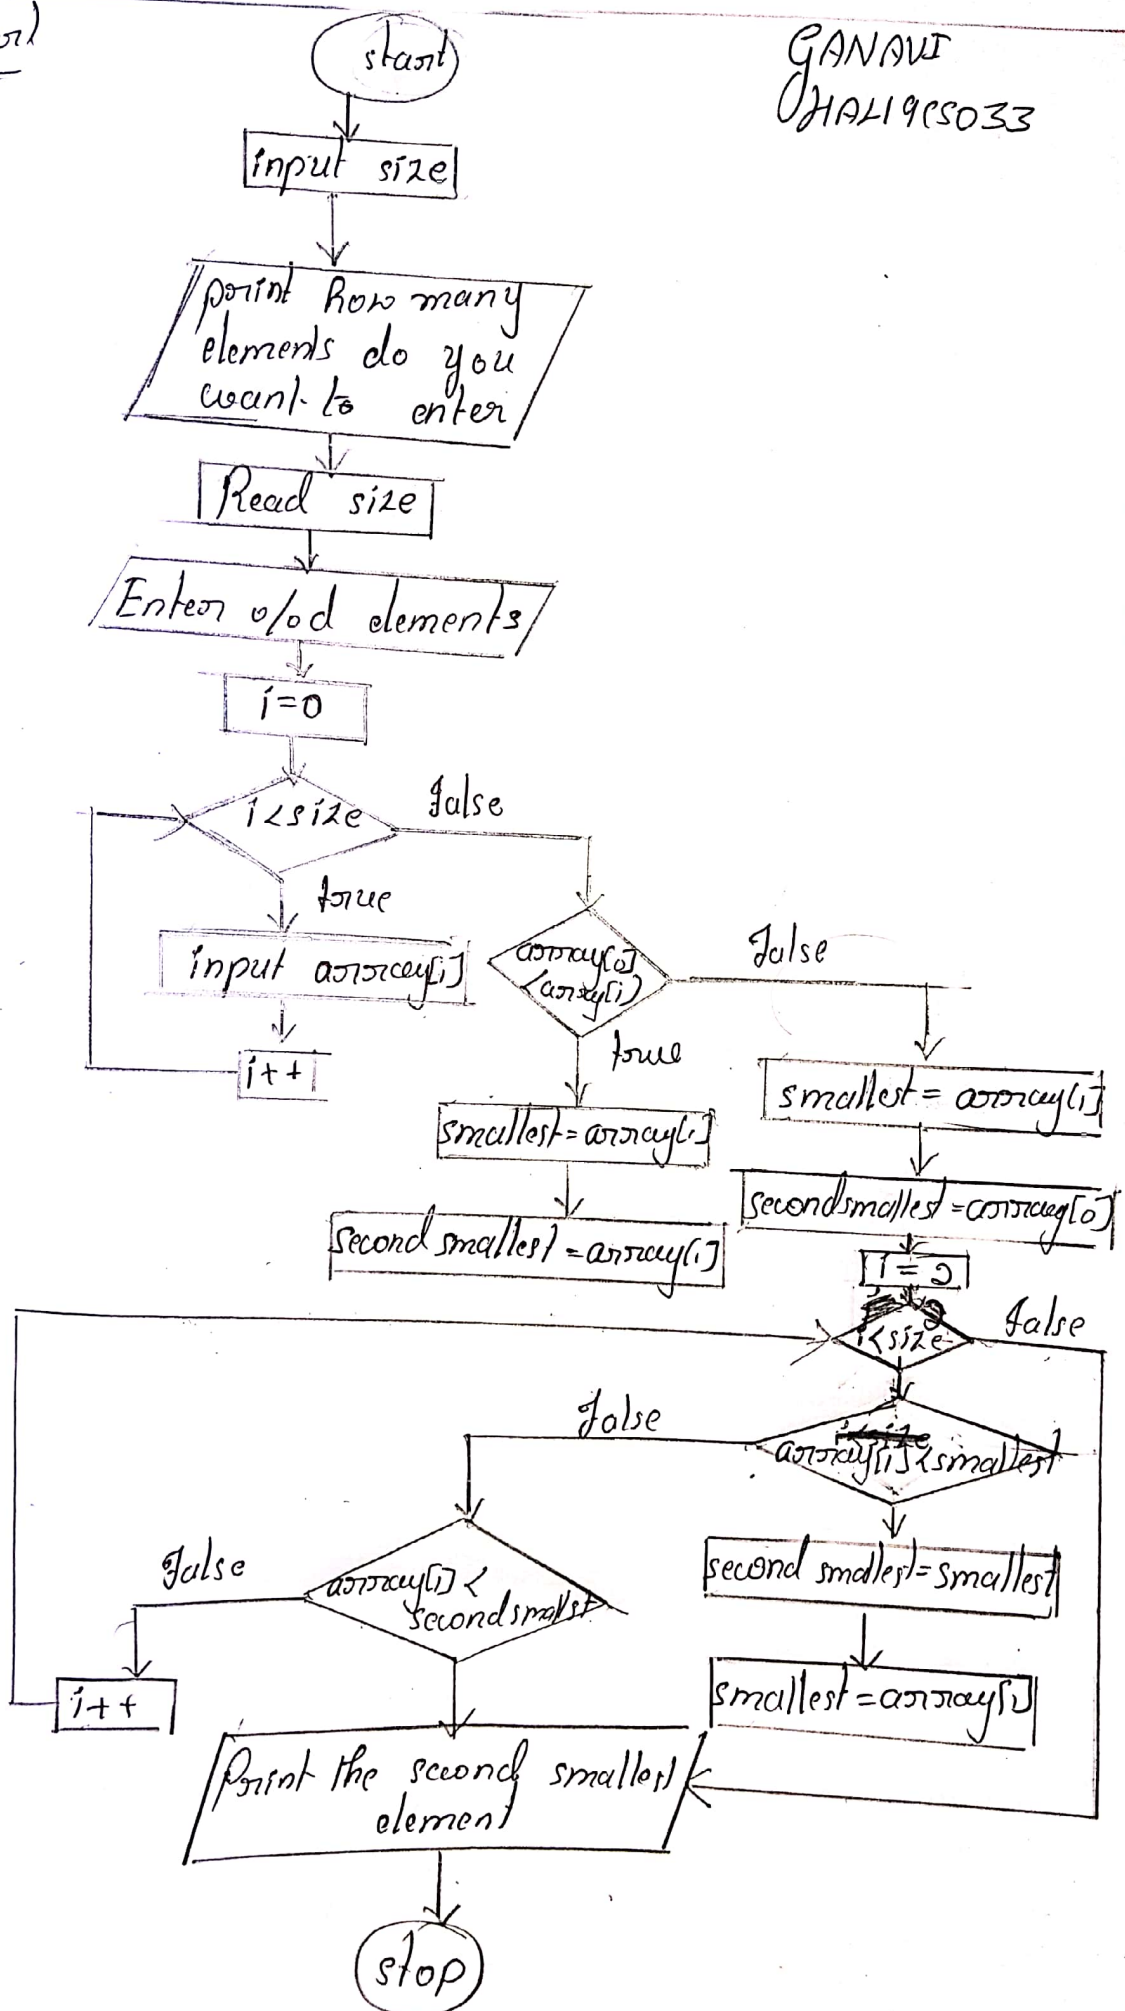 GANAVI
start
input size
print how many
elements do you
want to enter
Read size
Enter %d elements
i=0
i<size
false
true
input array[i]
i++
array[0]
<array[i]
false
true
smallest = array[i]
smallest = array[i]
second smallest = array[i]
secondsmallest = array[0]
i=2
i<size
false
array[i]<smallest
false
second smallest = smallest
smallest = array[i]
array[i] <
secondsmallst
false
i++
Print the second smallest
element
stop